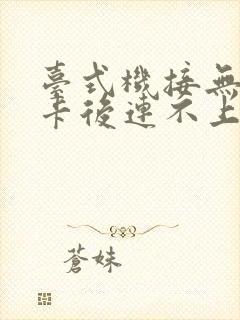 臺式機接無
卡後連不上
蒼妹